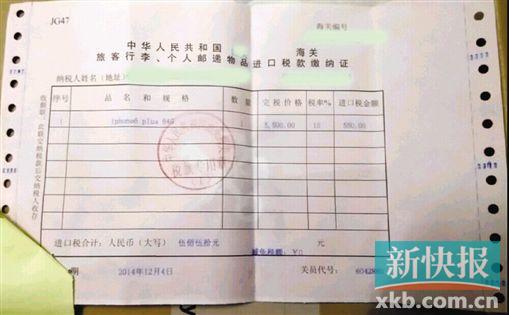 JG47
海关编号
中华人民共和国 海关
旅客行李、个人邮递物品进口税款缴纳证
纳税人姓名（地址）
序号 品名和规格 数量 完税价格 税率% 进口税金额
1 iphone6 plus 64G 1 5,500.00 10 550.00
进口税合计：人民币（大写） 伍佰伍拾元 元
减免税额：￥0
期 2014年12月4日 关员代号：
新快报
xkb.com.cn